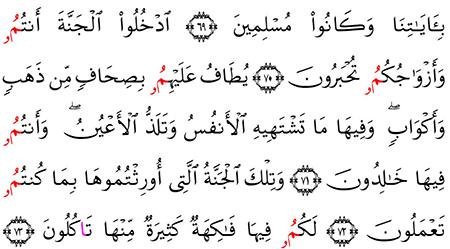 بِـَٔايَـٰتِنَا وَكَانُوا۟ مُسْلِمِينَ ﴿٦٩﴾ ٱدْخُلُوا۟ ٱلْجَنَّةَ أَنتُمُۥ
وَأَزْوَٰجُكُمُۥ تُحْبَرُونَ ﴿٧٠﴾ يُطَافُ عَلَيْهِمُۥ بِصِحَافٍ مِّن ذَهَبٍ
وَأَكْوَابٍۖ وَفِيهَا مَا تَشْتَهِيهِ ٱلْأَنفُسُ وَتَلَذُّ ٱلْأَعْيُنُۖ وَأَنتُمُۥ
فِيهَا خَـٰلِدُونَ ﴿٧١﴾ وَتِلْكَ ٱلْجَنَّةُ ٱلَّتِىٓ أُورِثْتُمُوهَا بِمَا كُنتُمُۥ
تَعْمَلُونَ ﴿٧٢﴾ لَكُمُۥ فِيهَا فَـٰكِهَةٌ كَثِيرَةٌ مِّنْهَا تَاكُلُونَ ﴿٧٣﴾